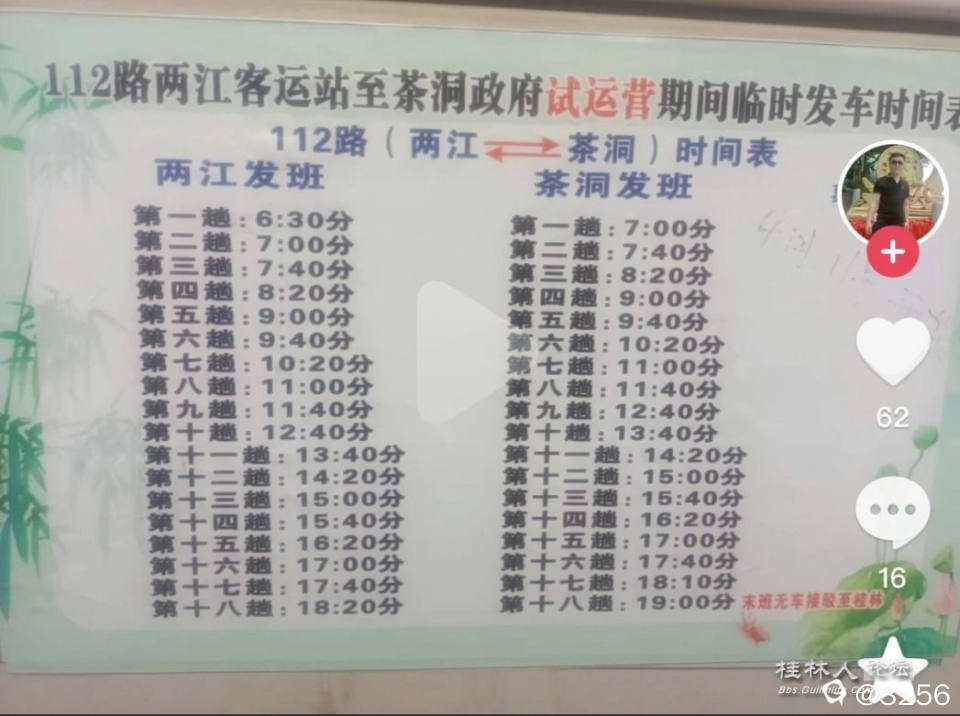 112路两江客运站至茶洞政府试运营期间临时发车时间表
112路（两江⇌茶洞）时间表
两江发班
第一趟：6:30分
第二趟：7:00分
第三趟：7:40分
第四趟：8:20分
第五趟：9:00分
第六趟：9:40分
第七趟：10:20分
第八趟：11:00分
第九趟：11:40分
第十趟：12:40分
第十一趟：13:40分
第十二趟：14:20分
第十三趟：15:00分
第十四趟：15:40分
第十五趟：16:20分
第十六趟：17:00分
第十七趟：17:40分
第十八趟：18:20分
茶洞发班
第一趟：7:00分
第二趟：7:40分
第三趟：8:20分
第四趟：9:00分
第五趟：9:40分
第六趟：10:20分
第七趟：11:00分
第八趟：11:40分
第九趟：12:40分
第十趟：13:40分
第十一趟：14:20分
第十二趟：15:00分
第十三趟：15:40分
第十四趟：16:20分
第十五趟：17:00分
第十六趟：17:40分
第十七趟：18:10分
第十八趟：19:00分
末班无车接驳至桂林
62
16
桂林人论坛
@3256